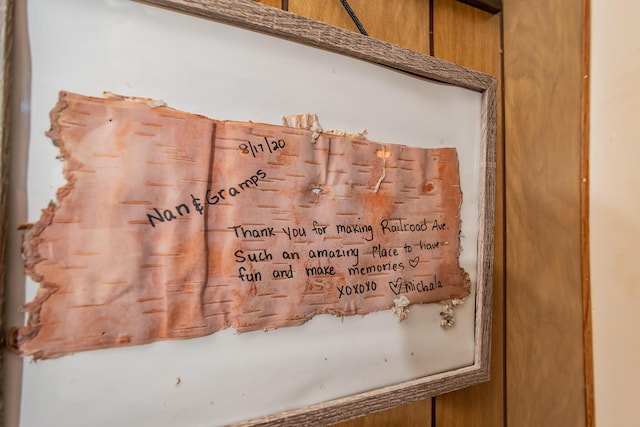 8/17/20
Nan & Gramps
Thank you for making Railroad Ave.
Such an amazing Place to have
fun and make memories ♡
xoxoxo ♡ michala